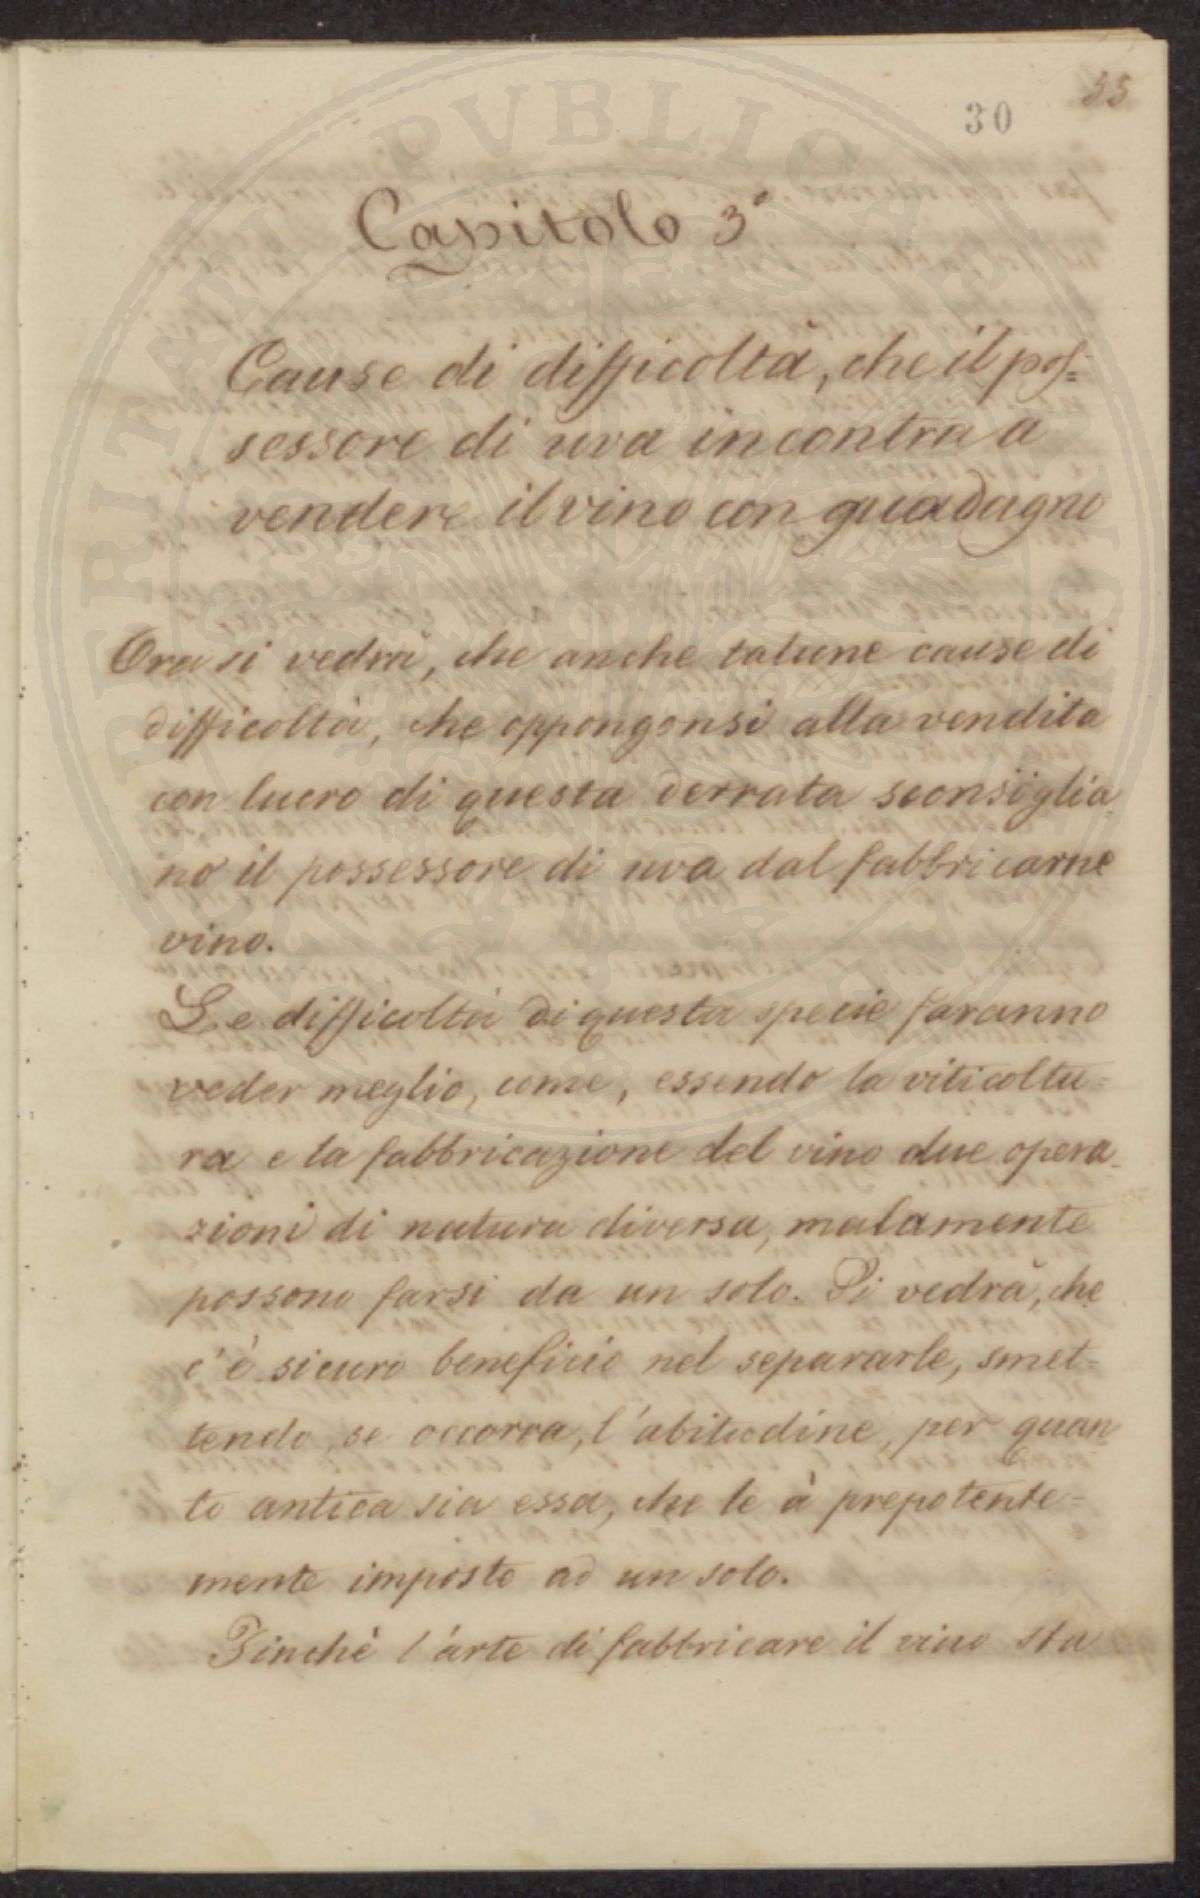 55
30
Capitolo 3°
Cause di difficoltà, che il pos=
sessore di uva incontra a
vendere il vino con guadagno
Ora si vedrà, che anche talune cause di
difficoltà, che oppongonsi alla vendita
con lucro di questa derrata sconsiglia-
no il possessore di uva dal fabbricarne
vino.
Le difficoltà di questa specie faranno
veder meglio, come, essendo la viticoltu=
ra e la fabbricazione del vino due opera-
zioni di natura diversa, malamente
possono farsi da un solo. Si vedrà, che
c'è sicuro beneficio nel separarle, smet=
tendo, se occorra, l'abitudine, per quan-
to antica sia essa, che le à prepotente=
mente imposte ad un solo.
Finchè l'arte di fabbricare il vino sta